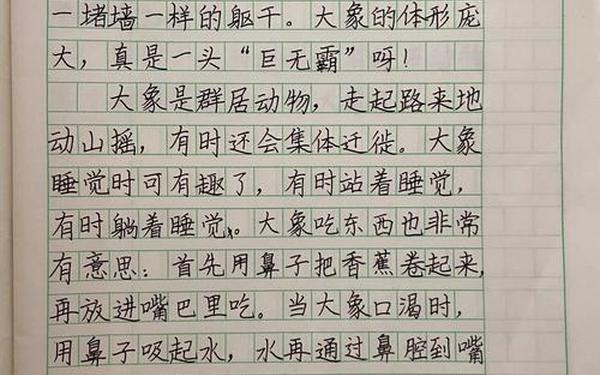 一堵墙一样的躯干。大象的体形庞
大，真是一头“巨无霸”呀！
大象是群居动物，走起路来地
动山摇，有时还会集体迁徙。大象
睡觉时可有趣了，有时站着睡觉，
有时躺着睡觉。大象吃东西也非常
有意思：首先用鼻子把香蕉卷起来，
再放进嘴巴里吃。当大象口渴时，
用鼻子吸起水，水再通过鼻腔到嘴